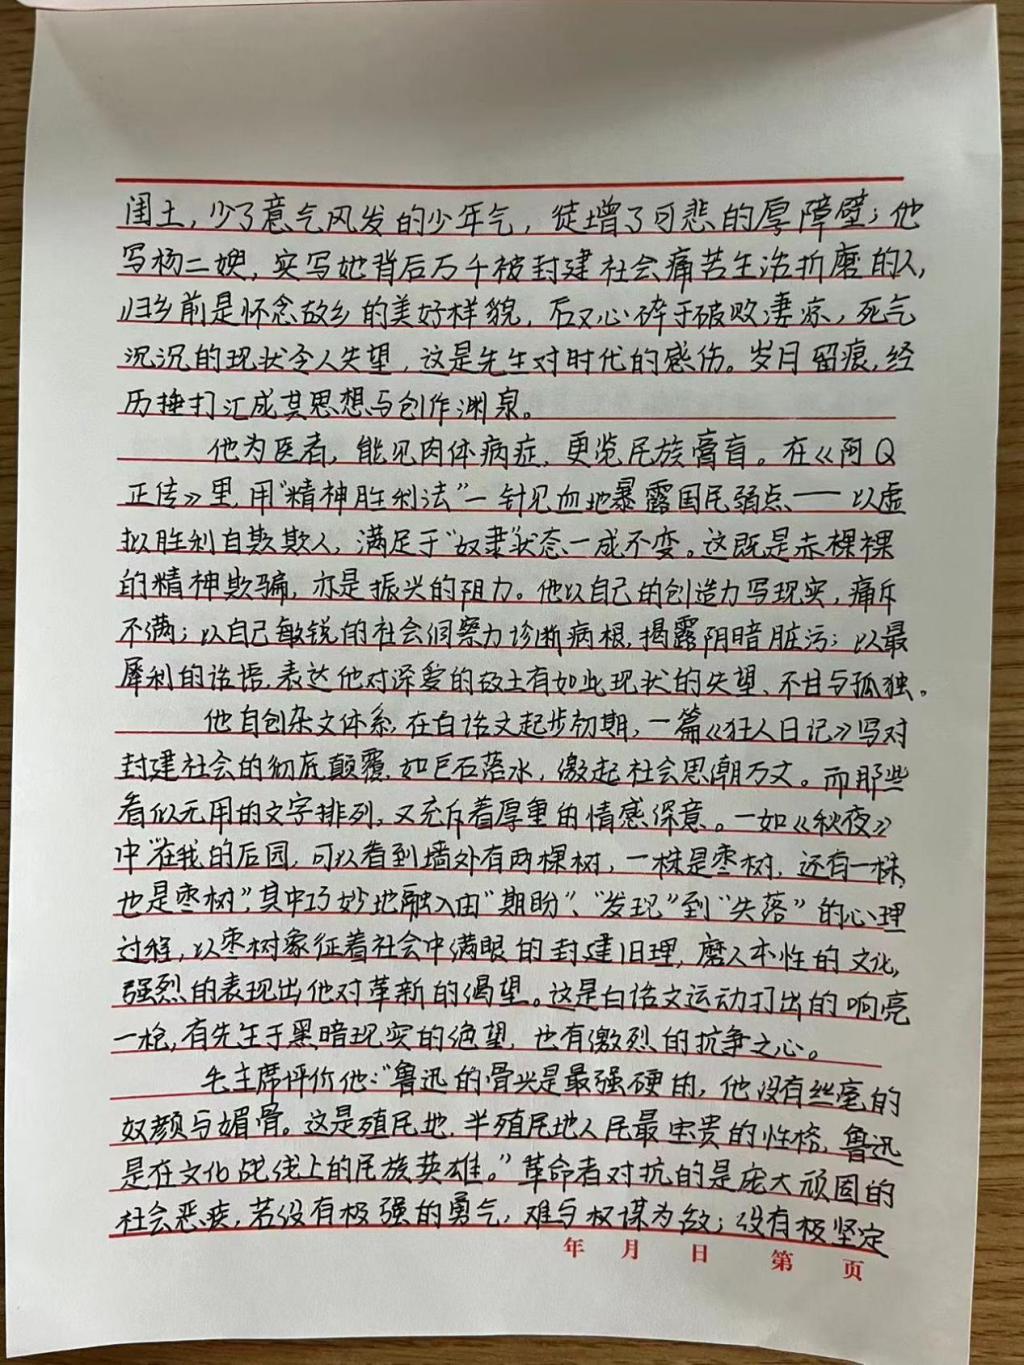 闰土，少了意气风发的少年气，徒增了可悲的厚障壁；他
写杨二嫂，实写她背后万千被封建社会痛苦生活折磨的人，
归乡前是怀念故乡的美好样貌，后又心碎于破败凄凉，死气
沉沉的现状令人失望，这是先生对时代的感伤。岁月留痕，经
历捶打汇成其思想与创作渊泉。
他为医者，能见肉体病症，更览民族膏肓。在《阿Q
正传》里，用“精神胜利法”一针见血地暴露国民弱点——以虚
拟胜利自欺欺人，满足于“奴隶”状态一成不变。这既是赤裸裸
的精神欺骗，亦是振兴的阻力。他以自己的创造力写现实，痛斥
不满；以自己敏锐的社会洞察力诊断病根，揭露阴暗脏污；以最
犀利的话语，表达他对深爱的故土有如此现状的失望、不甘与孤独。
他自创杂文体系，在白话文起步初期，一篇《狂人日记》写对
封建社会的彻底颠覆，如巨石落水，激起社会思潮万丈。而那些
看似无用的文字排列，又充斥着厚重的情感深意。一如《秋夜》
中“在我的后园，可以看到墙外有两棵树，一株是枣树，还有一株
也是枣树”，其中巧妙地融入由“期盼”、“发现”到“失落”的心理
过程，以枣树象征着社会中满眼的封建旧理，磨人本性的文化，
强烈的表现出他对革新的渴望。这是白话文运动打出的响亮
一枪，有先生于黑暗现实的绝望，也有激烈的抗争之心。
毛主席评价他：“鲁迅的骨头是最强硬的，他没有丝毫的
奴颜与媚骨。这是殖民地、半殖民地人民最宝贵的性格，鲁迅
是在文化战线上的民族英雄。”革命者对抗的是庞大顽固的
社会恶疾，若没有极强的勇气，难与权谋为敌；没有极坚定
年 月 日 第 页